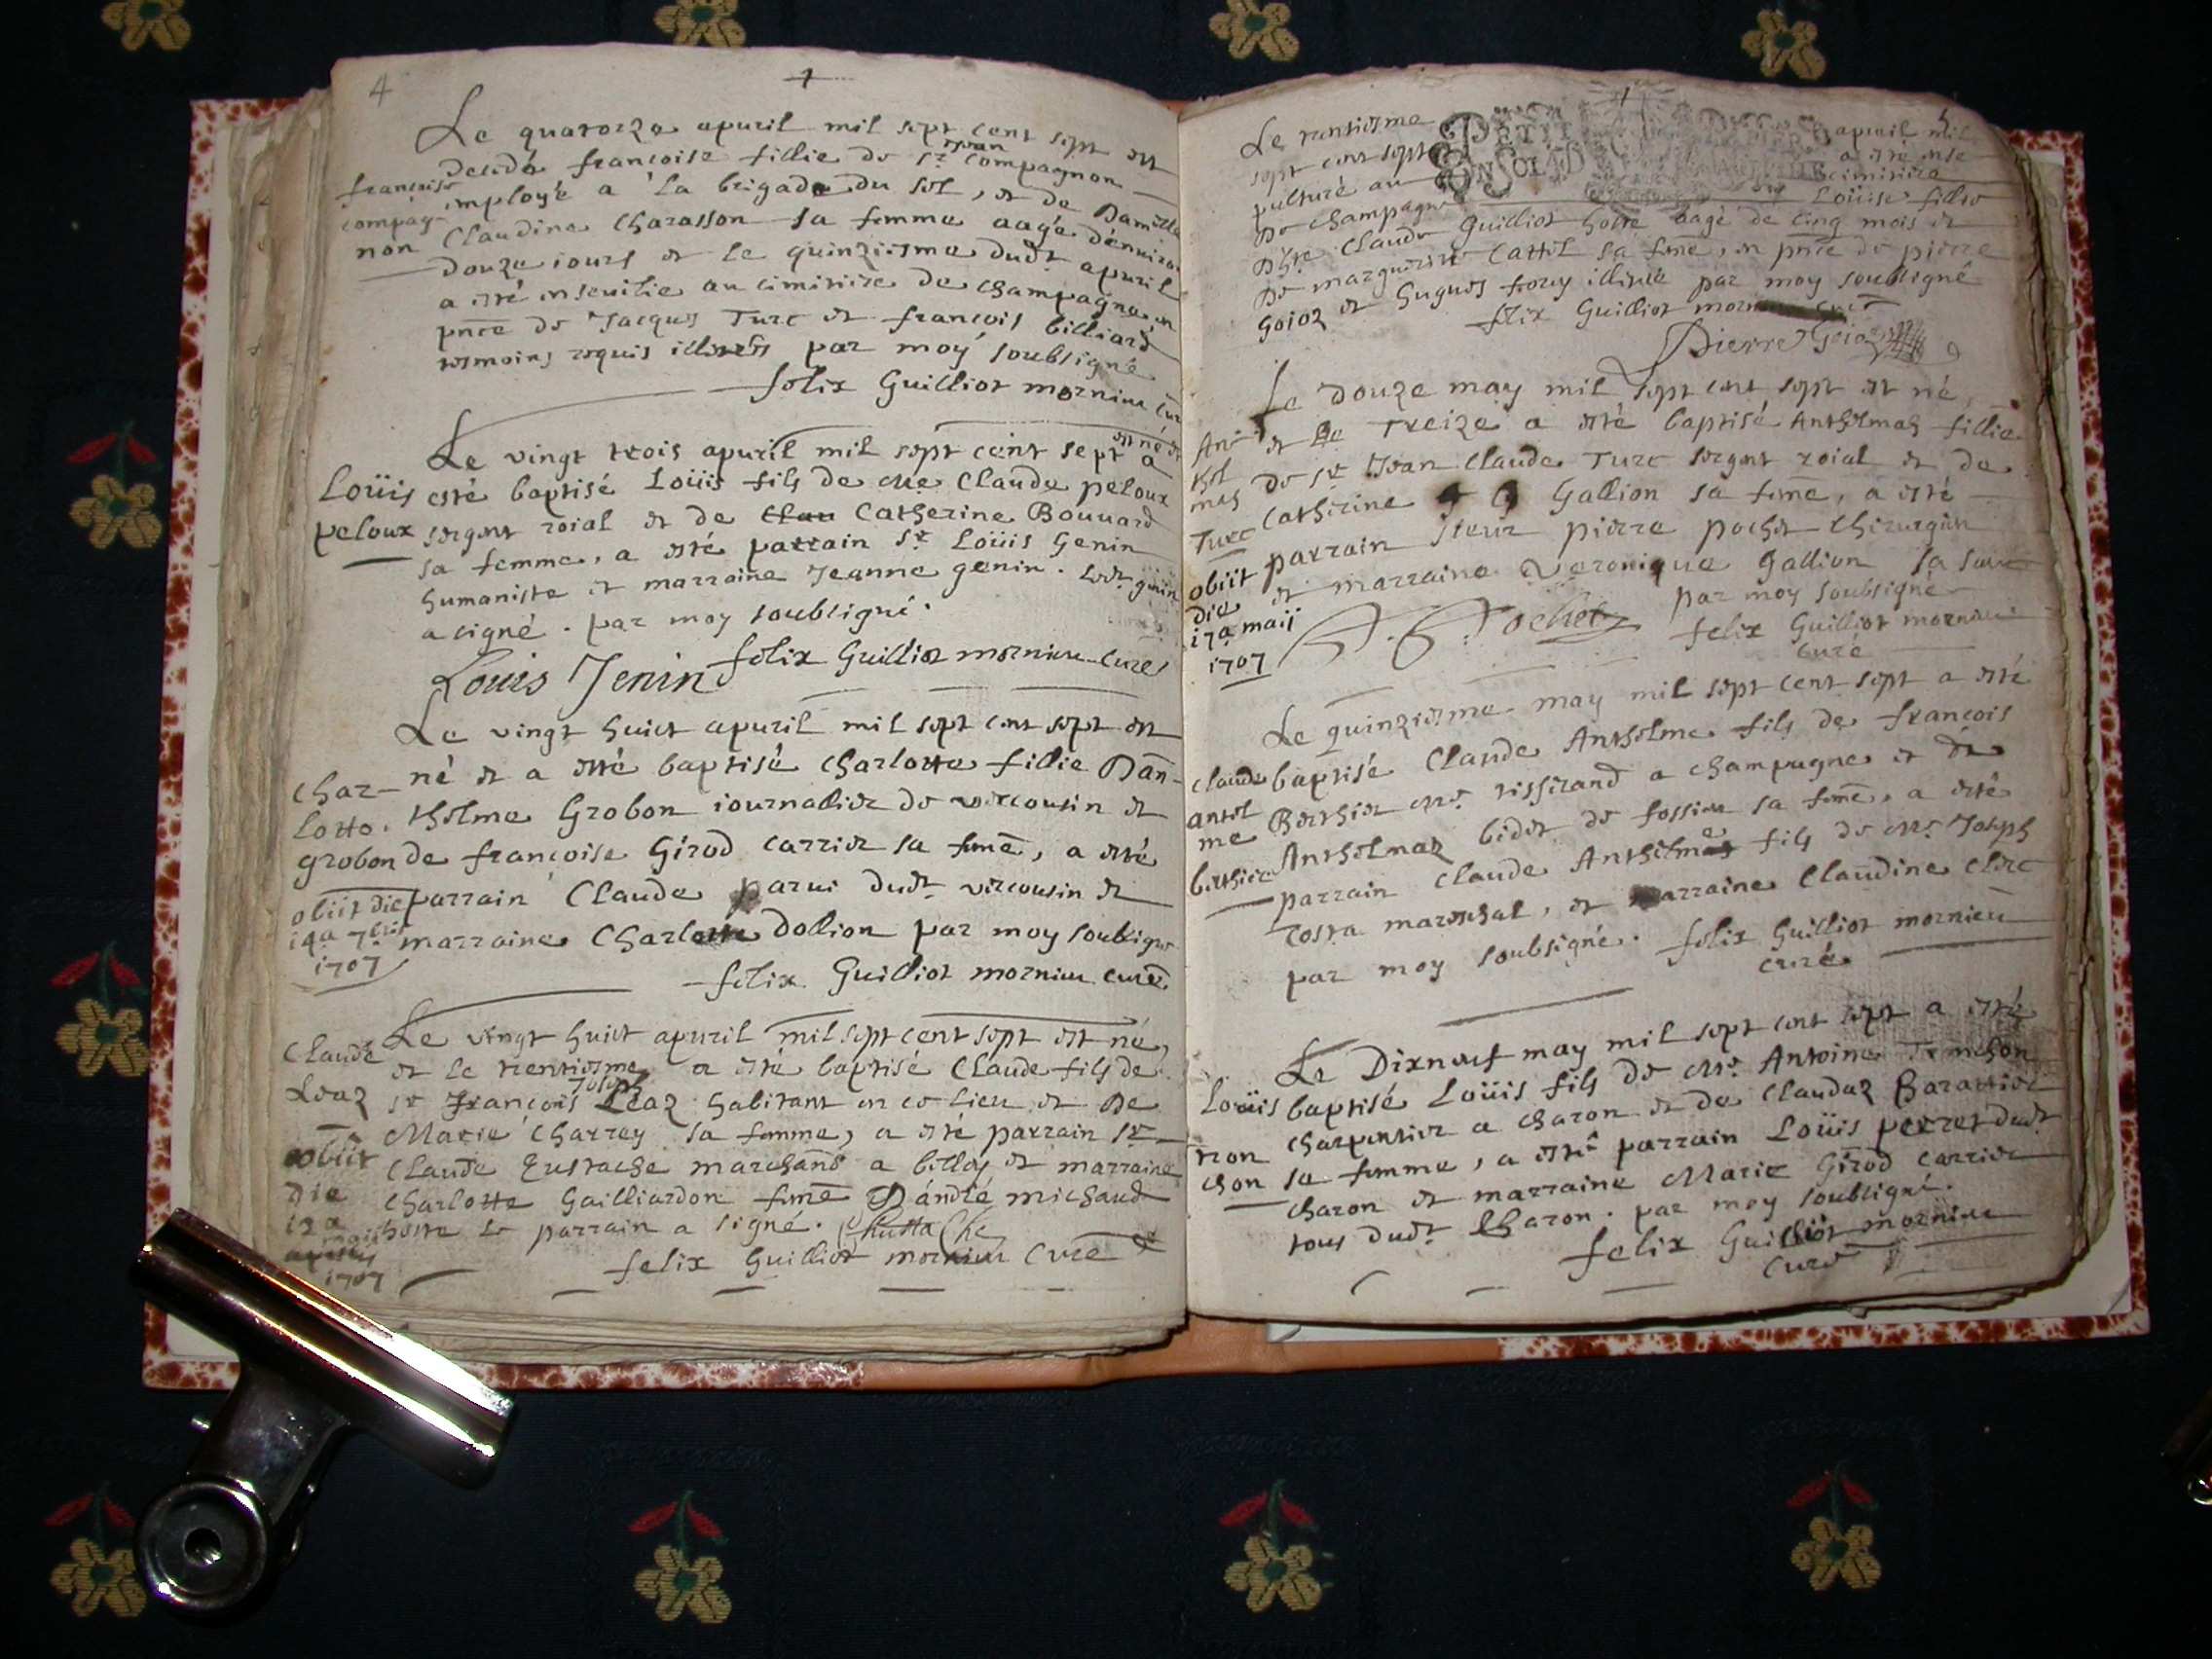 4
Le quatorze apuril mil sept cent sept est
decedé francoise fillie de sr Jean Compagnon
francoise compagnon
employé a la brigade du sel, et de Damlle
Claudine Charasson sa femme aagé d'enuiron
douze iours et le quinziesme dudt apuril
a esté enseuilie au cimitiere de champagne, en
pnce de Jacques Turc et francois billiard
tesmoins requis illiterés par moy soubsigné
felix Guilliot mornieu curé
Le vingt trois apuril mil sept cent sept est né et a
Loüis peloux
esté baptisé Loüis fils de Me Claude peloux
sergent roial et de Catherine Bouuard
sa femme, a esté parrain sr Loüis Genin
humaniste et marraine Jeanne genin. Ledt genin
a signé. par moy soubsigné.
Louis Jenin felix Guilliot mornieu curé
Le vingt huict apuril mil sept cent sept est
Charlotte grobon
né et a esté baptisé Charlotte fillie Dan-
thelme Grobon iournallier de virecousin et
de francoise Girod Carrier sa feme, a esté
obiit die 14a 7bris 1707
parrain Claude parui dudt virecousin et
marraine Charlotte Dollion par moy soubsigné
felix Guilliot mornieu curé
Le vingt huict apuril mil sept cent sept est né,
Claude Leaz
et le trentiesme a esté baptisé Claude fils de
sr francois Joseph Léaz habitant en ce lieu et De
Marie Charrey sa femme, a esté parrain sr
obiit die maii 1707
Claude Eustache marchand a billey et marraine
Charlotte Gailliardon feme D'andré michaud
hoste le parrain a signé.
felix Guilliot mornieu Curé
5
Le trentiesme apuril mil
sept cent sept a esté inse
pulturé au cimitiere
De champagne Louise fillie
D'hte Claude Guilliot hoste aagé de cinq mois et
De marguerite Cattil sa feme, en pnce de pierre
Goioz et hugues frery illiteré par moy soubsigné
felix Guilliot mornieu curé
Pierre Goioz
Le Douze may mil sept cent sept est né,
Anthelmas Turc
et Le Treize a esté baptisé Anthelmas fillie
de sr Jean Claude Turc sergent roial et de
Catherine Gallion sa feme, a esté
parrain sieur pierre pochet chirurgien
obiit die 17a maii 1707
et marraine Veronique Gallion sa soeur
P. Pochet par moy soubsigné
felix Guilliot mornieu
curé
Le quinziesme may mil sept cent sept a esté
claude anthelme berthier
baptisé Claude Anthelme fils de francois
Berthier Me tisserand a champagne et de
Anthelmaz bidet de fossieu sa feme, a esté
parrain Claude Anthelme fils de Me Joseph
Costa mareschal, et marraine Claudine Clerc
par moy soubsigné. felix Guilliot mornieu
curé
Le Dixneuf may mil sept cent sept a esté
Loüis tronchon
baptisé Loüis fils de Me Antoine Tronchon
charpentier a charon et de Claudaz Barattier
sa femme, a esté parrain Loüis perret dudt
charon et marraine Marie Girod Carrier
tous dudt Charon. par moy soubsigné.
felix Guilliot mornieu
curé